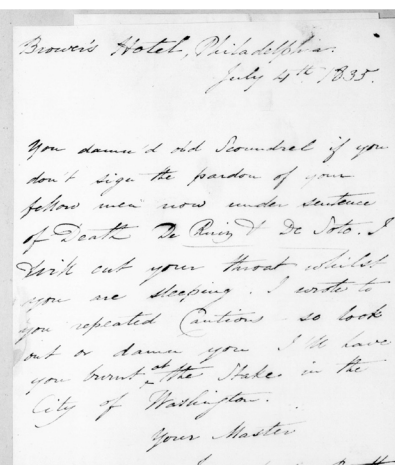 Brower's Hotel, Philadelphia.
July 4th 1835.
You damn'd old Scoundrel if you
don't sign the pardon of your
fellow men now under sentence
of Death De Ruiz & De Soto. I
will cut your throat whilst
you are sleeping. I wrote to
you repeated Cautions so look
out or damn you I'll have
you burnt at the Stake in the
City of Washington.
Your Master